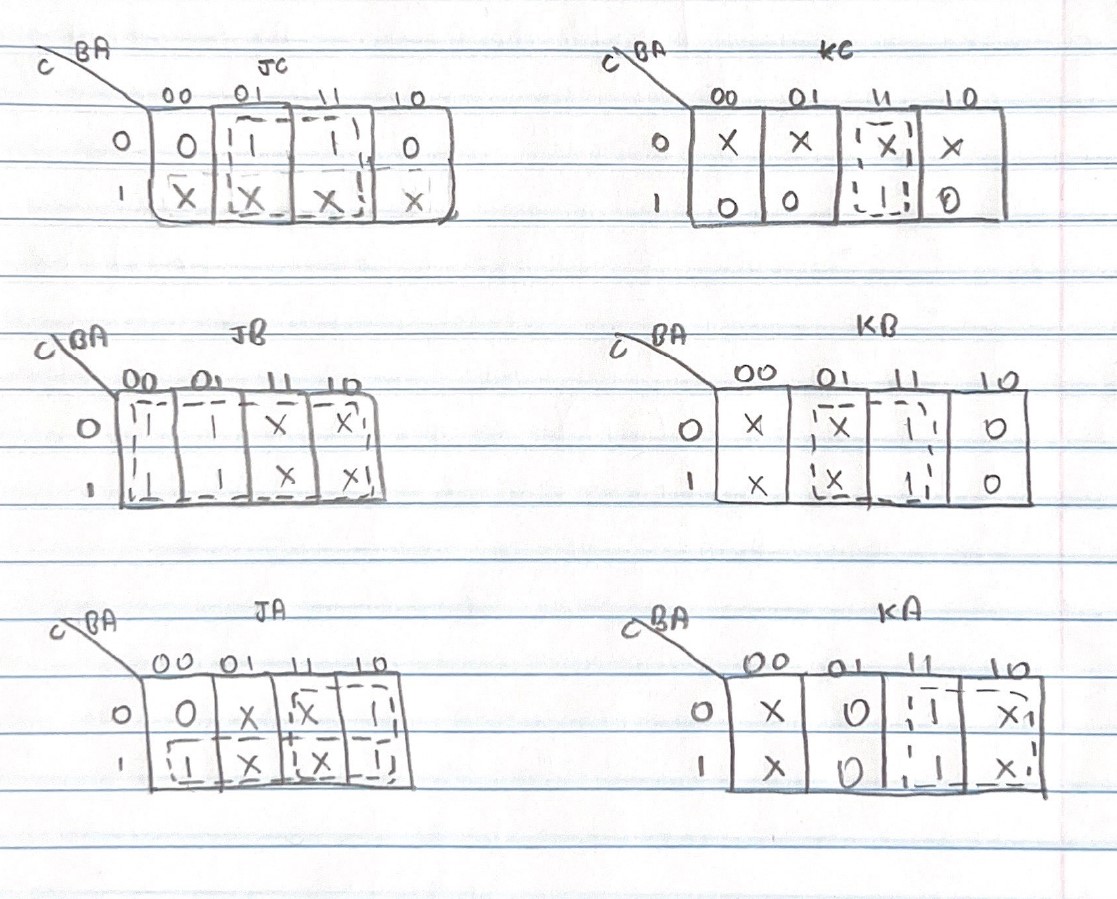 C BA JC
00 01 11 10
0 0 1 1 0
1 X X X X
C BA KC
00 01 11 10
0 X X X X
1 0 0 1 0
C BA JB
00 01 11 10
0 1 1 X X
1 1 1 X X
C BA KB
00 01 11 10
0 X X 1 0
1 X X 1 0
C BA JA
00 01 11 10
0 0 X X 1
1 1 X X 1
C BA KA
00 01 11 10
0 X 0 1 X
1 X 0 1 X